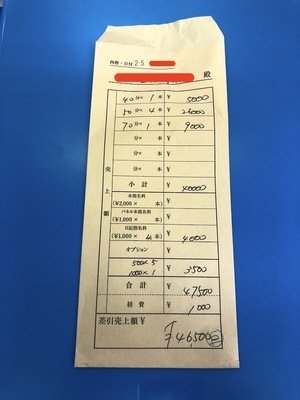 内訳・日付 25
殿
40分× 1 本 ¥ 5000
50分× 4 本 ¥ 26000
70分× 1 本 ¥ 9000
分× 本 ¥
分× 本 ¥
分× 本 ¥
売上額
小計 ¥ 40000
本指名料
(¥2,000× 本) ¥
パネル本指名料
(¥1,000× 本) ¥
日記指名料
(¥1,000× 4 本) ¥ 4000
オプション ¥
500×5
1000×1 ¥ 3500
合計 ¥ 47500
経費 ¥ 1000
差引売上額 ¥
¥46,500